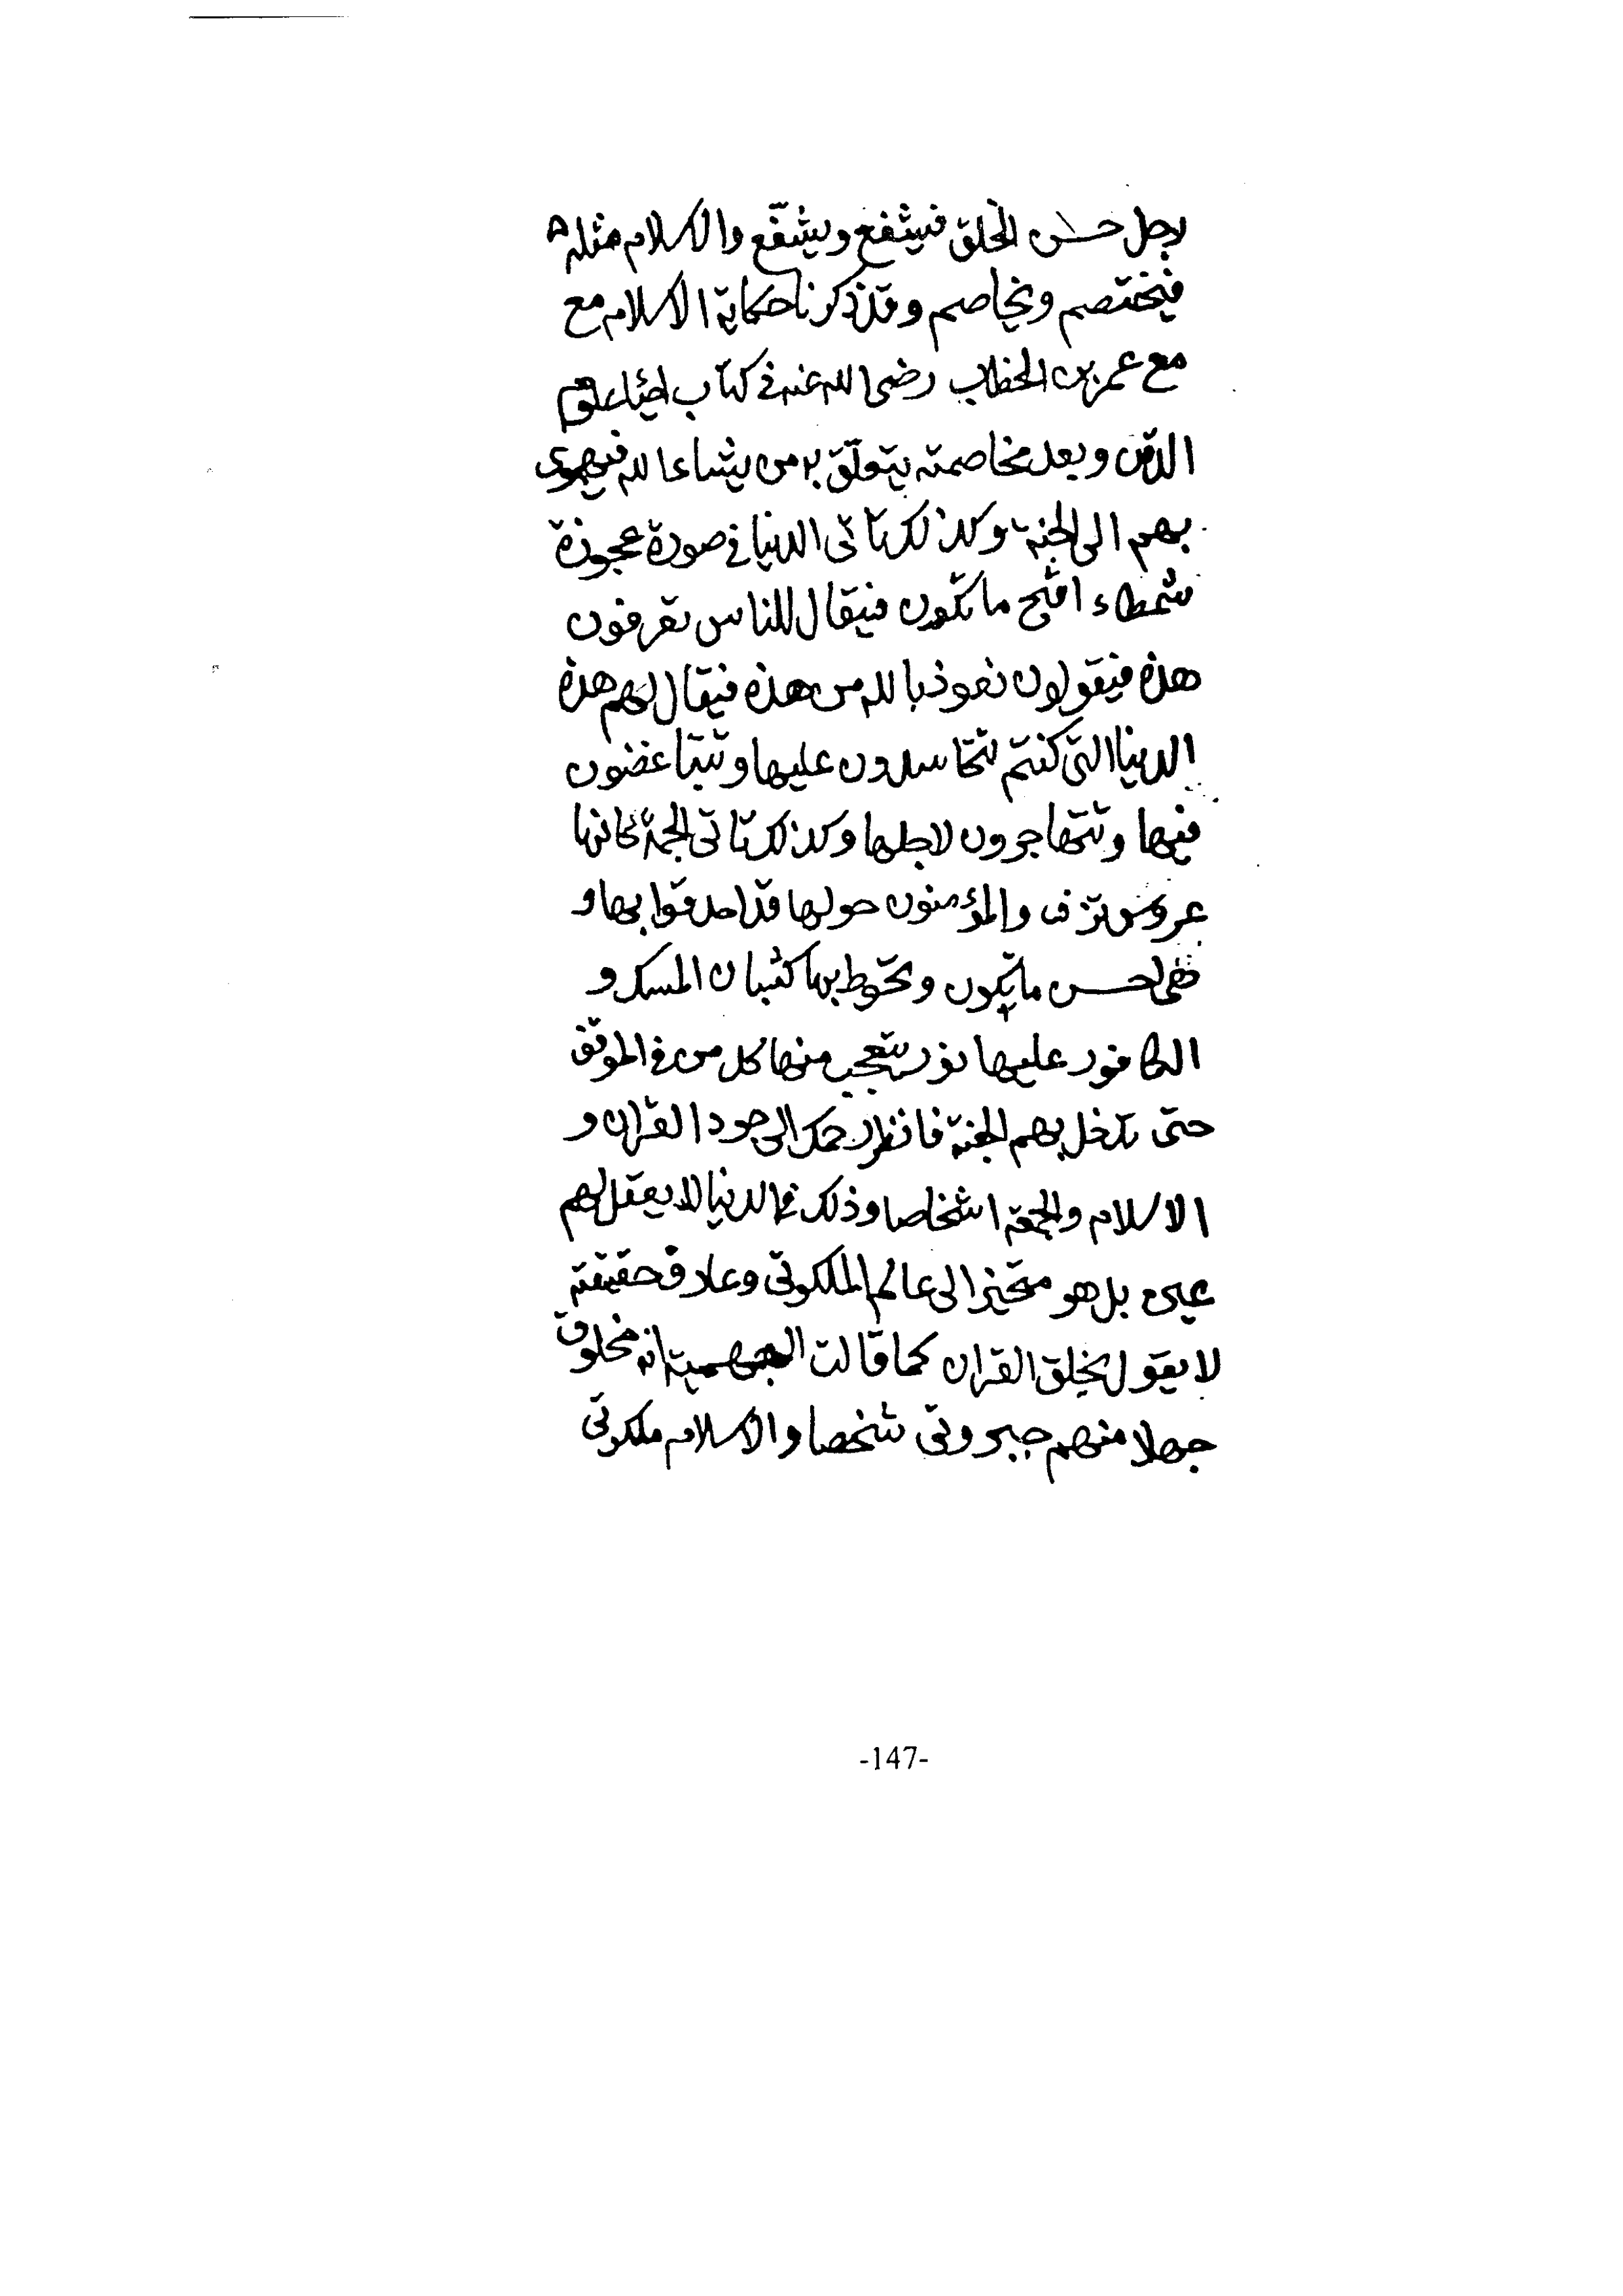 لاجل حسن الخلق فيشفع ويشفّع والاسلام مثله
فيختصم ويخاصم وقد ذكرنا حكاية الاسلام مع
مع عمر بن الخطاب رضى الله عنه فى كتاب احياء علوم
الدين وبعد مخاصمته يتعلّق به من يشاء الله فيهوى
بهم الى الجنة وكذلك تاتى الدنيا فى صورة عجوزة
شمطاء اقبح ما تكون فيقال للناس تعرفون
هذه فيقولون نعوذ بالله من هذه فيقال لهم هذه
الدنيا التى كنتم تتحاسدون عليها وتتباغضون
فيها وتتهاجرون لاجلها وكذلك تاتى الجمعة كانها
عروس تزف والمؤمنون حولها قد احدقوا بها و
هى احسن ما تكون ويحوط بها كثبان المسك و
الكافور عليها نور يتعجب منها كل من فى الموقف
حتى تدخل بهم الجنة فانظر رحمك الى جود القران و
الاسلام والجمعة اشخاصا وذلك فى الدنيا لا يعقل لهم
عين بل هو متحيز الى عالم الملكوتى وعارف حقيقته
لا يقول بخلق القران كما قالت الجهمية انه مخلوق
جهلا منهم جبروتى شخصا والاسلام ملكوتى
-147-